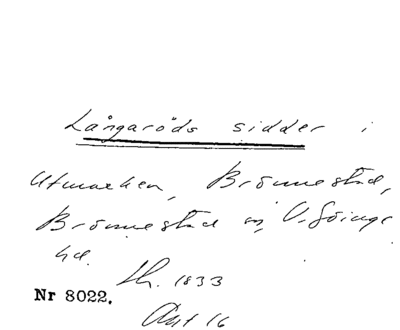 Långaröds sidder i
Utmarken, Brönnestad,
Brönnestad sn, V. Göinge
hd.
Lh. 1833
Nr 8022.
Akt 16